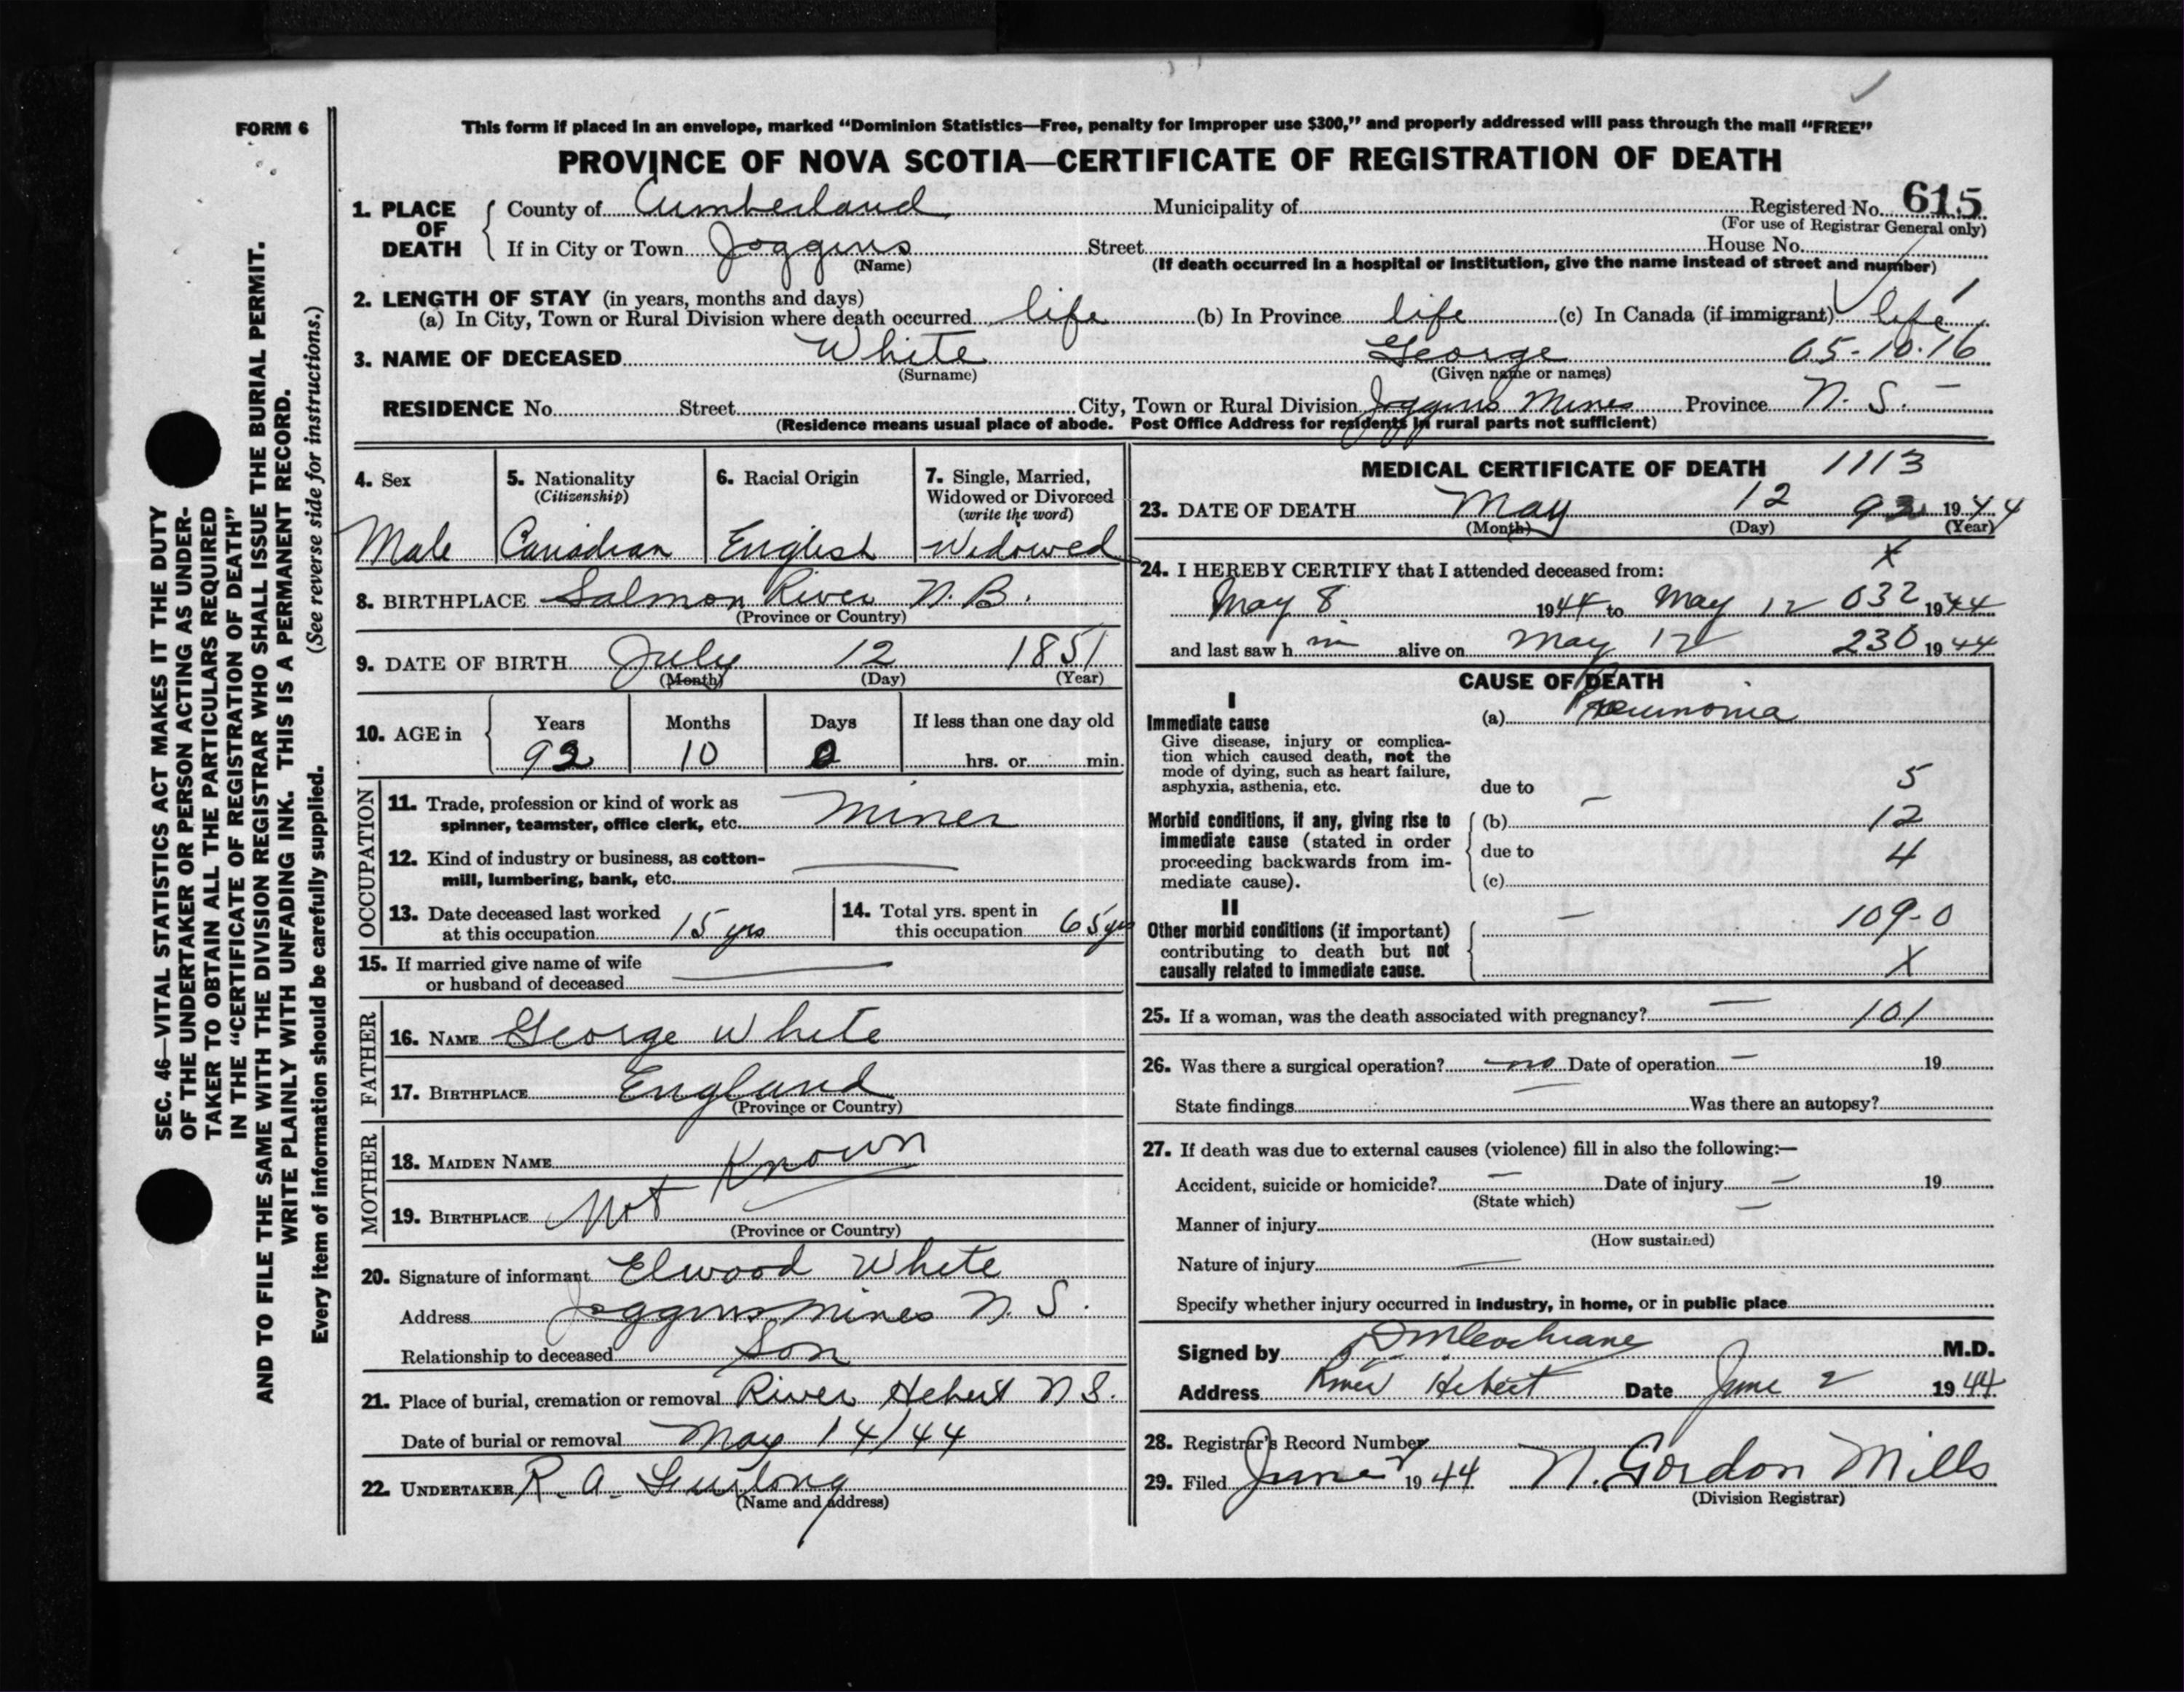 FORM 6
This form if placed in an envelope, marked “Dominion Statistics—Free, penalty for improper use $300,” and properly addressed will pass through the mail “FREE”
PROVINCE OF NOVA SCOTIA—CERTIFICATE OF REGISTRATION OF DEATH
SEC. 46—VITAL STATISTICS ACT MAKES IT THE DUTY
OF THE UNDERTAKER OR PERSON ACTING AS UNDER-
TAKER TO OBTAIN ALL THE PARTICULARS REQUIRED
IN THE “CERTIFICATE OF REGISTRATION OF DEATH”
AND TO FILE THE SAME WITH THE DIVISION REGISTRAR WHO SHALL ISSUE THE BURIAL PERMIT.
WRITE PLAINLY WITH UNFADING INK. THIS IS A PERMANENT RECORD.
Every item of information should be carefully supplied. (See reverse side for instructions.)
1. PLACE OF DEATH
County of Cumberland Municipality of Registered No. 615
(For use of Registrar General only)
If in City or Town Joggins Street House No.
(Name) (If death occurred in a hospital or institution, give the name instead of street and number)
2. LENGTH OF STAY (in years, months and days)
(a) In City, Town or Rural Division where death occurred life (b) In Province life (c) In Canada (if immigrant) life
3. NAME OF DECEASED White George 05-10-16
(Surname) (Given name or names)
RESIDENCE No. Street City, Town or Rural Division Joggins Mines Province N. S.
(Residence means usual place of abode. Post Office Address for residents in rural parts not sufficient)
4. Sex
Male
5. Nationality
(Citizenship)
Canadian
6. Racial Origin
English
7. Single, Married,
Widowed or Divorced
(write the word)
Widowed
8. BIRTHPLACE Salmon River N.B.
(Province or Country)
9. DATE OF BIRTH July 12 1851
(Month) (Day) (Year)
10. AGE in Years Months Days If less than one day old
92 10 0 hrs. or min.
OCCUPATION
11. Trade, profession or kind of work as
spinner, teamster, office clerk, etc. Miner
12. Kind of industry or business, as cotton-
mill, lumbering, bank, etc.
13. Date deceased last worked
at this occupation 15 yrs
14. Total yrs. spent in
this occupation 65 yrs
15. If married give name of wife
or husband of deceased
FATHER
16. NAME George White
17. BIRTHPLACE England
(Province or Country)
MOTHER
18. MAIDEN NAME Known
19. BIRTHPLACE Not
(Province or Country)
20. Signature of informant Elwood White
Address Joggins Mines N. S.
Relationship to deceased Son
21. Place of burial, cremation or removal River Hebert N S.
Date of burial or removal May 14/44
22. UNDERTAKER R. A.
(Name and address)
MEDICAL CERTIFICATE OF DEATH 1113
23. DATE OF DEATH May 12 92 1944
(Month) (Day) (Year)
X
24. I HEREBY CERTIFY that I attended deceased from:
May 8 1944 to May 12 032 1944
and last saw h im alive on May 12 230 1944
CAUSE OF DEATH
I
Immediate cause
Give disease, injury or complica-
tion which caused death, not the
mode of dying, such as heart failure,
asphyxia, asthenia, etc.
(a) Pneumonia
due to 5
Morbid conditions, if any, giving rise to
immediate cause (stated in order
proceeding backwards from im-
mediate cause).
(b) 12
due to 4
(c)
II
Other morbid conditions (if important)
contributing to death but not
causally related to immediate cause.
109-0
X
25. If a woman, was the death associated with pregnancy? 101
26. Was there a surgical operation? no Date of operation 19
State findings Was there an autopsy?
27. If death was due to external causes (violence) fill in also the following:—
Accident, suicide or homicide? Date of injury 19
(State which)
Manner of injury
(How sustained)
Nature of injury
Specify whether injury occurred in industry, in home, or in public place
Signed by Cochrane M.D.
Address River Hebert Date June 2 1944
28. Registrar's Record Number
29. Filed June 1944 N. Gordon Mills
(Division Registrar)